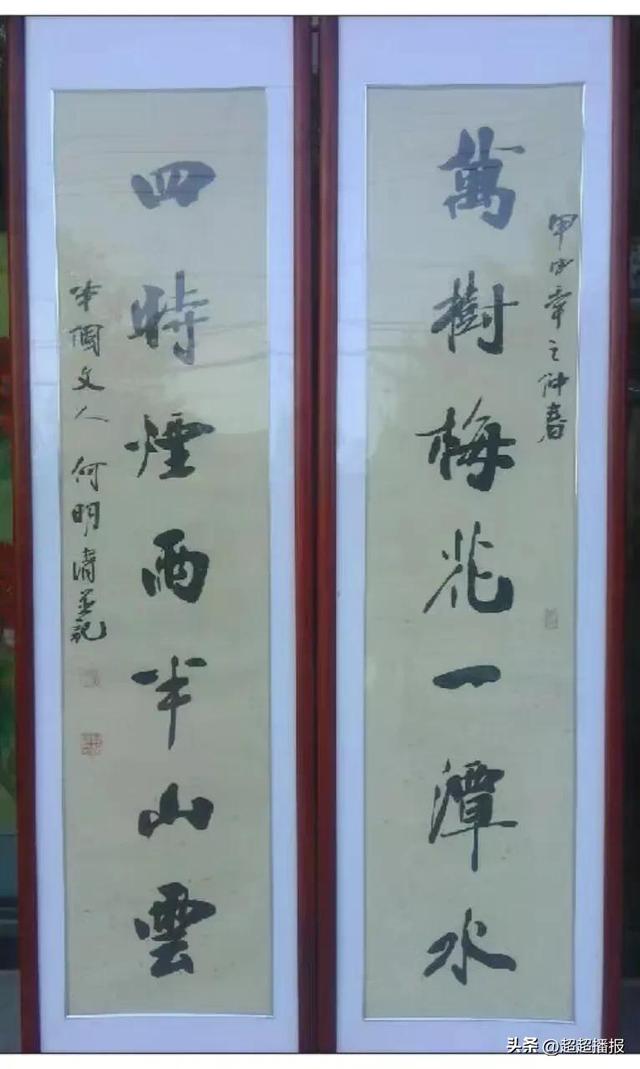 甲申年之仲春
萬樹梅花一潭水
四時煙雨半山雲
半個文人何明清並記
头条 @超超播报